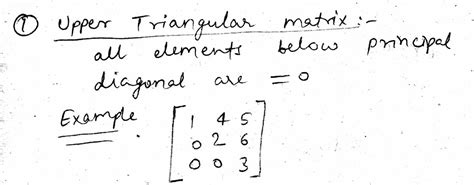 ① Upper Triangular matrix :-
all elements below principal
diagonal are = 0
Example
1 4 5
0 2 6
0 0 3